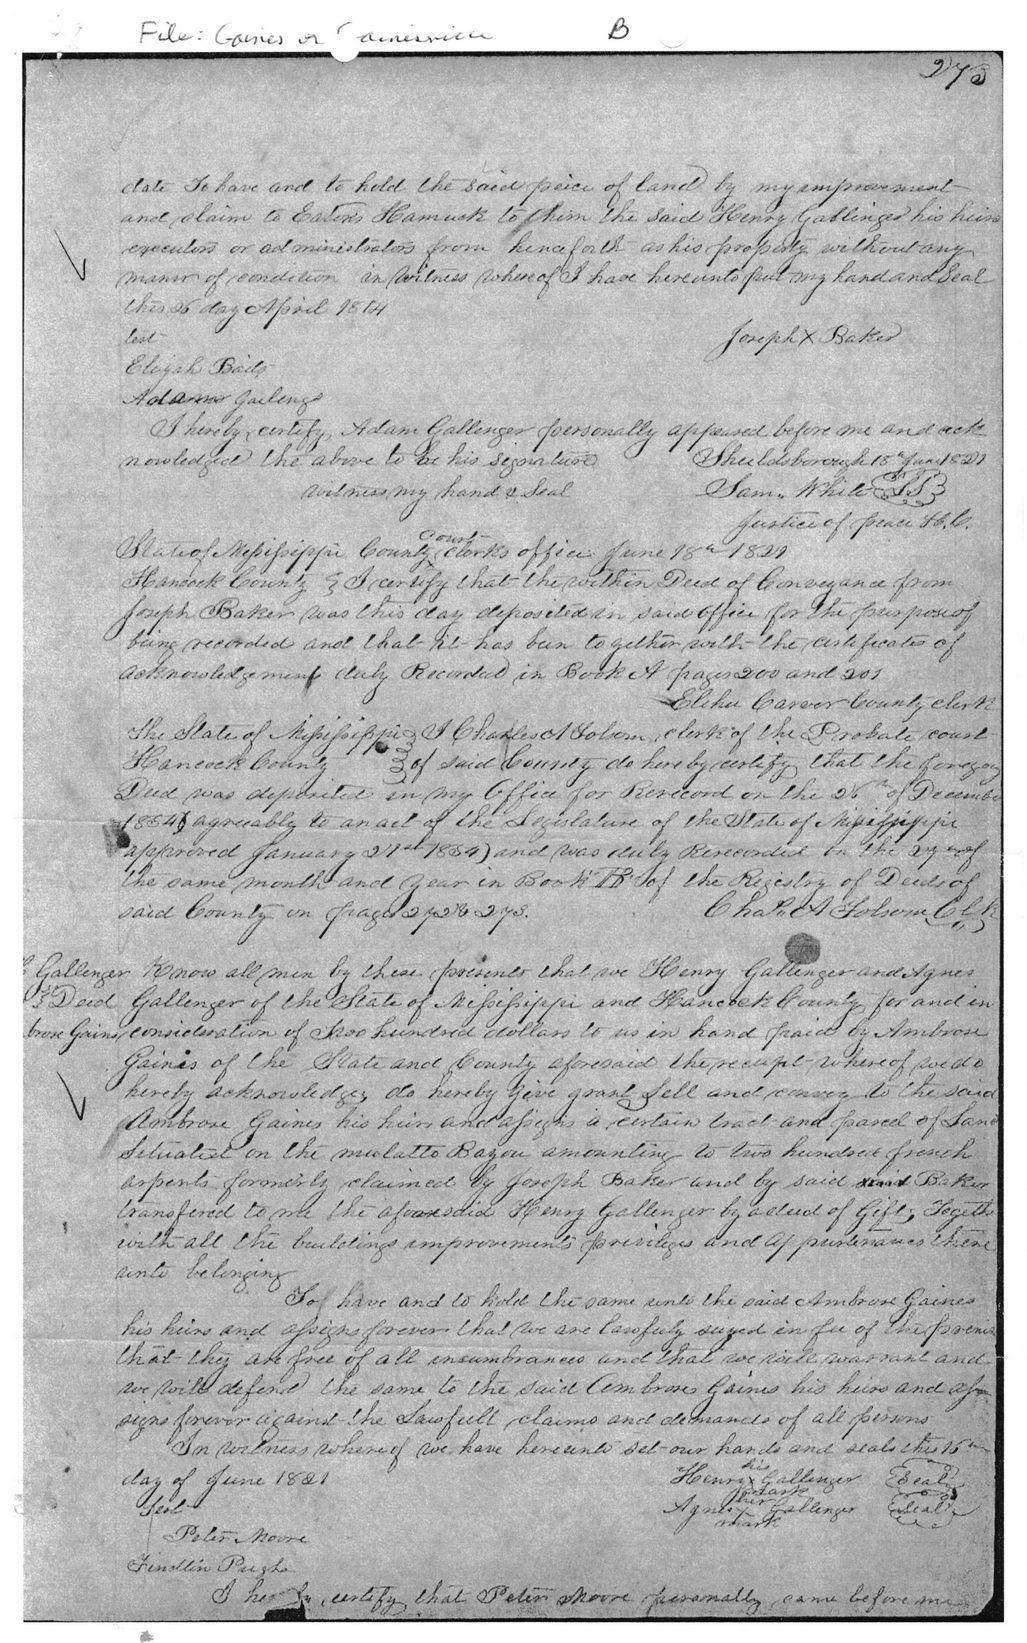 File: Gaines or Gainesville B
273
date To have and to hold the said peice of land by my improvement
and claim to Eatons Hamuck to them the said Henry Gallinger his heirs
executors or administrators from henceforth as his property without any
manor of condition in witness whereof I have hereunto put my hand and Seal
this 26 day April 1814
test
Joseph X Baker
Elijah
Adam
I hereby certify Adam Gallenger personally appeared before me and ack
nowledged the above to be his signature Shieldsborough 18th June 1821
witness my hand & Seal Saml. White
Justice of peace H.C.
State of Mississippi County Court clerks office June 18th 1821
Hancock County } I certify that the within Deed of Conveyance from
Joseph Baker was this day deposited in said office for the purpose of
being recorded and that it has been together with the certificate of
acknowledgement duly Recorded in Book A pages 200 and 201
Elihu Carver County clerk
The State of Mississippi } I Charles A Folsom clerk of the Probate court
Hancock County } of said County do hereby certify that the foregoing
Deed was deposited in my Office for Rerecord on the 26th of December
1854 (agreably to an act of the Legislature of the State of Mississippi
approved January 27th 1854) and was duly Rerecorded on the 27th of
the same month and year in Book B of the Registry of Deeds of
said County on pages 272 & 273. Chas. A Folsom Clk
Gallenger Know all men by these presents that we Henry Gallenger and Agnes
Deed Gallenger of the State of Mississippi and Hancock County for and in
brose Gains consideration of Two hundred dollars to us in hand paid by Ambrose
Gaines of the State and County aforesaid the receipt whereof we do
hereby acknowledge, do hereby give grant Sell and convey to the said
Ambrose Gaines his heirs and assigns a certain tract and parcel of Land
Situated on the mulatto Bayou amounting to two hundred french
arpents formerly claimed by Joseph Baker and by said Baker
transfered to me the aforesaid Henry Gallenger by a deed of Gift, Togeth
with all the buildings improvements privileges and appurtenances there
unto belonging
To have and to hold the same unto the said Ambrose Gaines
his heirs and assigns forever that we are lawfuly seized in fee of the premis
that they are free of all incumbrances and that we will warrant and
we will defend the same to the said Ambrose Gaines his heirs and as
signs forever against the Lawfull claims and demands of all persons
In witness whereof we have hereunto set our hands and seals this 16th
day of June 1821 Henry his X mark Gallenger (Seal)
Test Agnes her X mark Gallenger (Seal)
Peter Moore
Findlin Pugh
I hereby certify that Peter Moore personally came before me